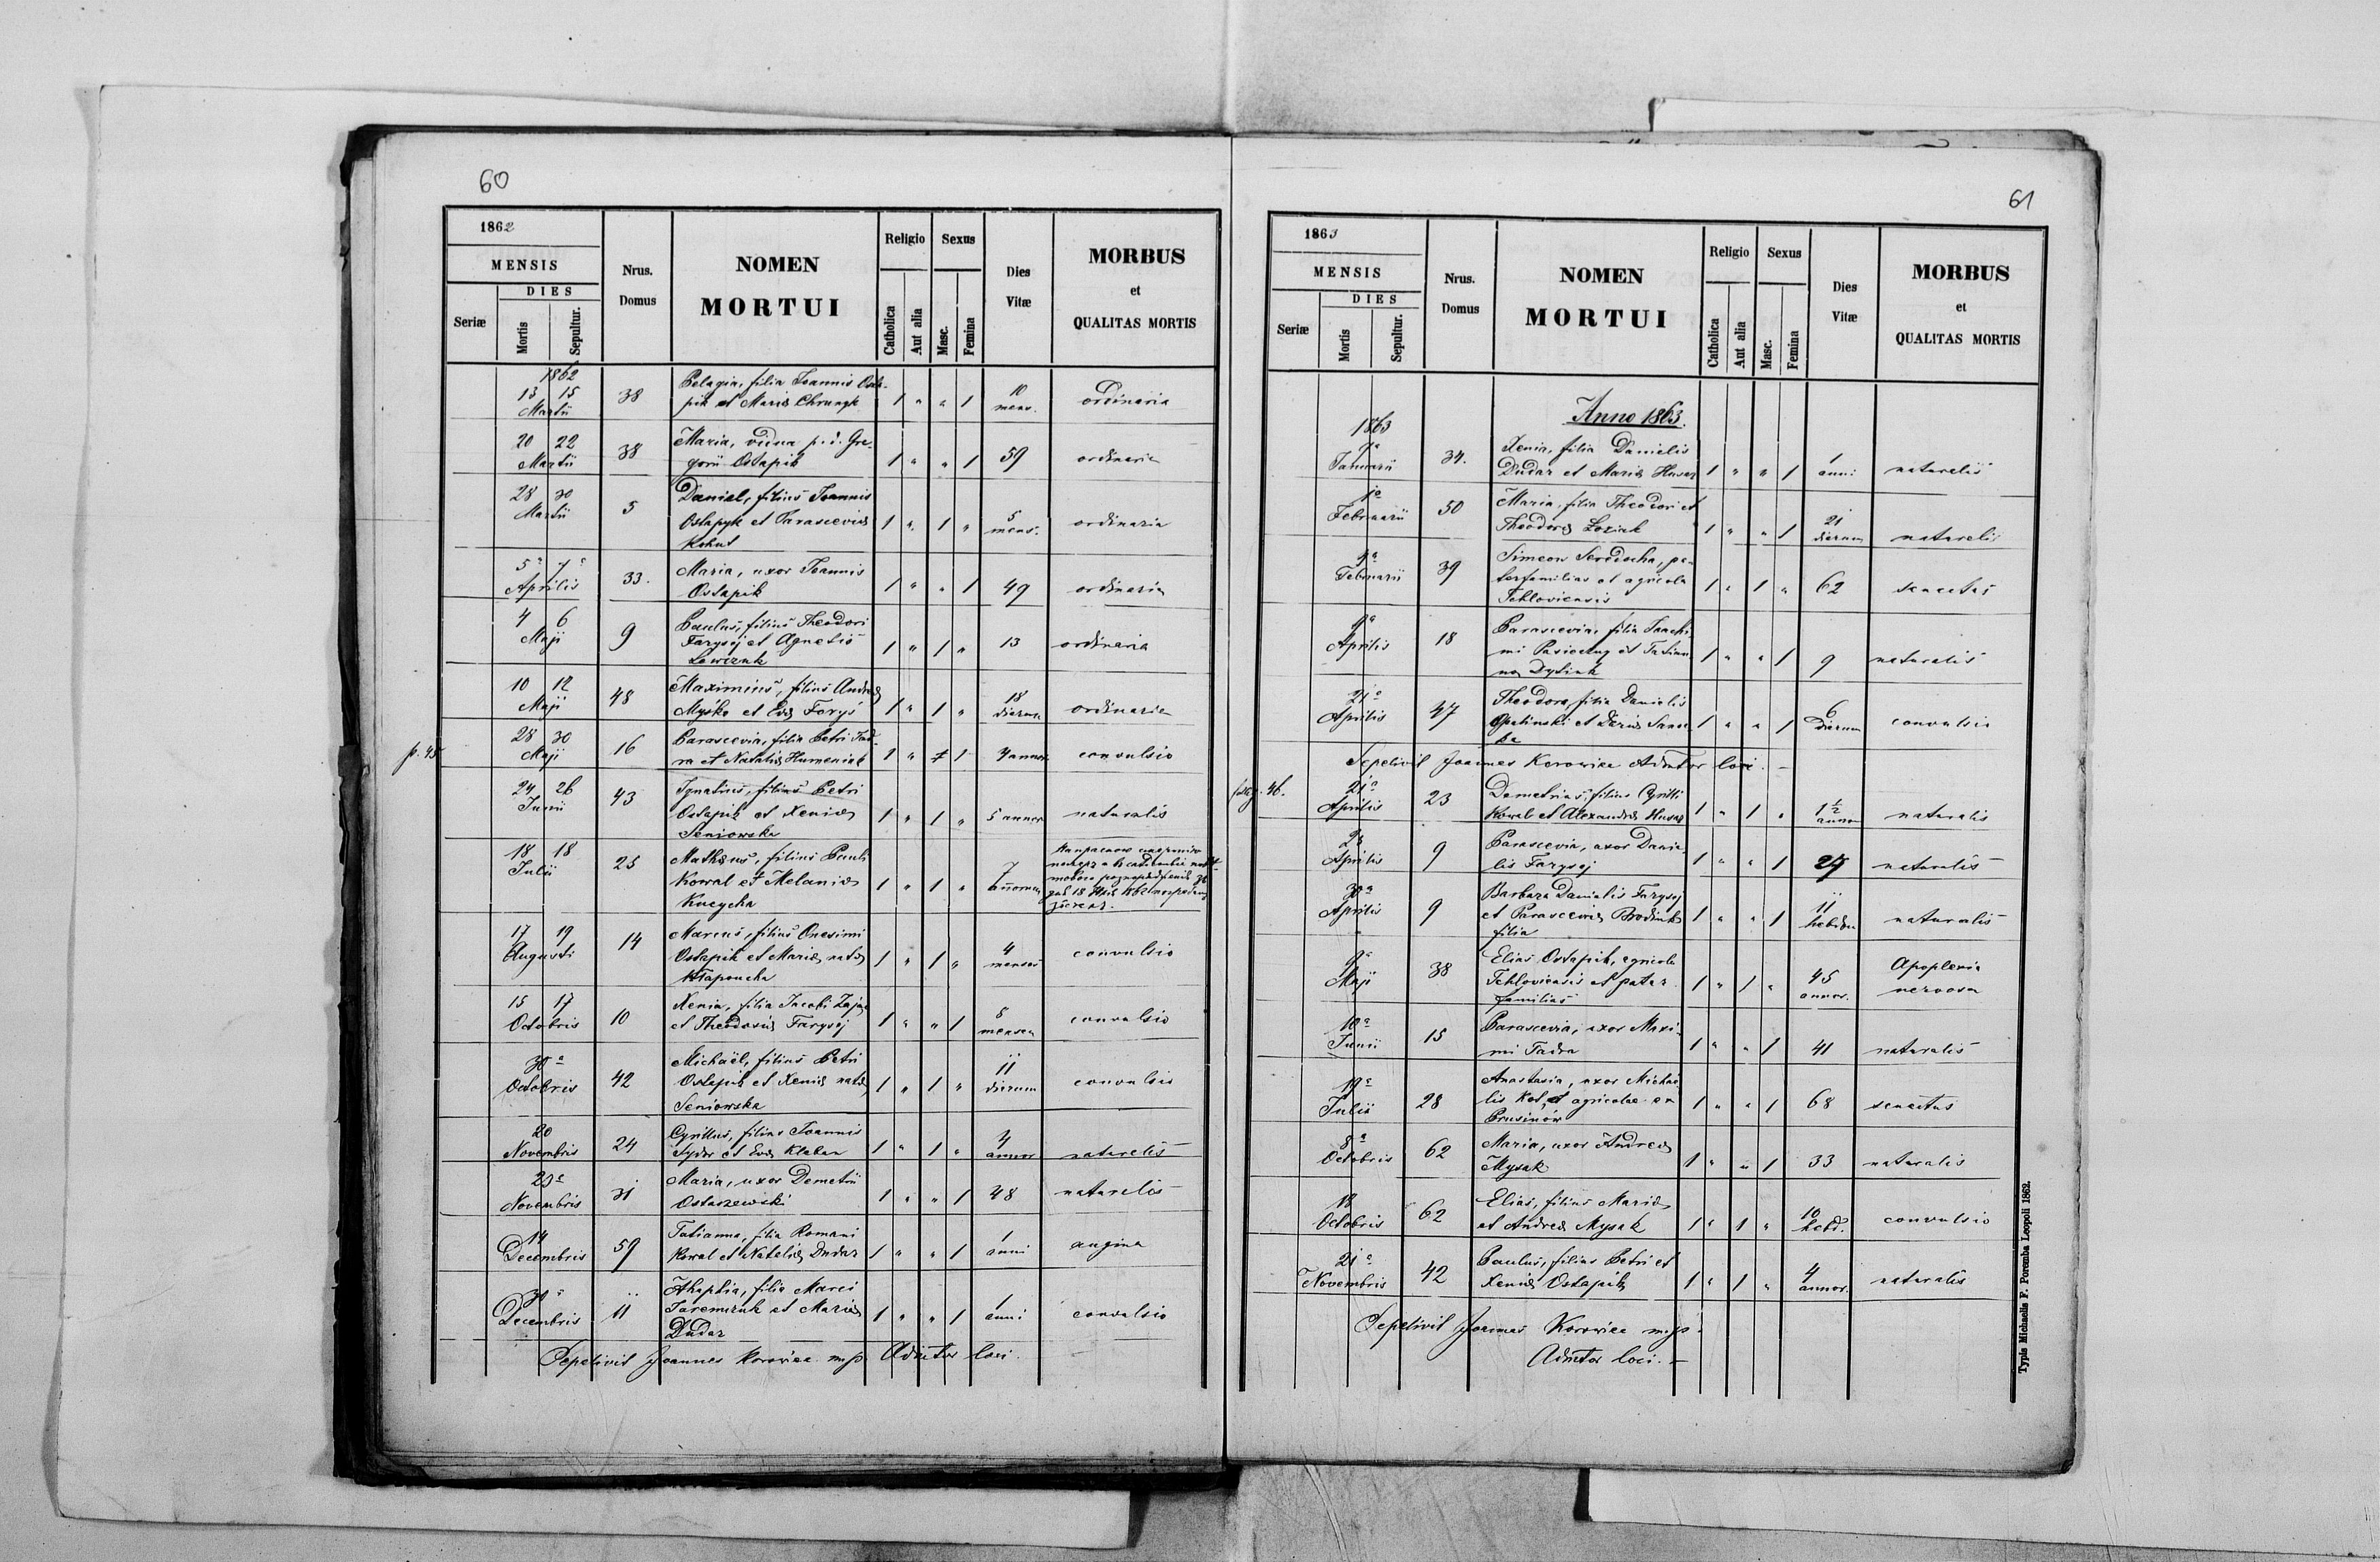 60
1862
MENSIS
Seriæ
DIES
Mortis
Sepultur.
Nrus.
Domus
NOMEN
MORTUI
Religio
Catholica
Aut alia
Sexus
Masc.
Femina
Dies
Vitæ
MORBUS
et
QUALITAS MORTIS
1862
13 15 Martii 38 Pelagia, filia Joannis Osta-
pik et Mariæ 1 " " 1 10 mens. ordinaria
20 22 Martii 38 Maria, vidua p. d. Gre-
gorii Ostapik 1 " " 1 59 ordinaria
28 30 Martii 5 Daniel, filius Joannis
Ostapyk et Parasceviæ
Kohut 1 " 1 " 5 mens. ordinaria
5a 7a Aprilis 33. Maria, uxor Joannis
Ostapik 1 " " 1 49 ordinaria
4 6 Maji 9 Paulus, filius Theodori
Farysej et Agnetis
Lewczuk 1 " 1 " 13 ordinaria
10 12 Maji 48 Maximus, filius Andreæ
Myśko et Evæ Foryś 1 " 1 " 18 dierum ordinaria
p. 45
28 30 Maji 16 Parascevia, filia Petri Jad-
ra et Nataliæ Humeniak 1 " 1 4 annor. convulsio
24 26 Junii 43 Ignatius, filius Petri
Ostapik et Xeniæ
Seniowska 1 " 1 " 5 annor naturalis
18 18 Julii 25 Mathæus, filius Pauli
Kowal et Melaniæ
1 " 1 " 7 annorum
17 19 Augusti 14 Marcus, filius Onesimi
Ostapik et Mariæ natæ
1 " 1 " 4 menses convulsio
15 17 Octobris 10 Xenia, filia Jacobi Zając
et Theodosiæ Farysej 1 " " 1 8 menses convulsio
30a Octobris 42 Michaël, filius Petri
Ostapik et Xeniæ natæ
Seniowska 1 " 1 " 11 dierum convulsio
20 Novembris 24 Cyrillus, filius Joannis
et Evæ Klaban 1 " 1 " 4 annor naturalis
29a Novembris 31 Maria, uxor Demetrii
Ostaszewski 1 " " 1 48 naturalis
14 Decembris 59 Tatianna, filia Romani
Kowal et Nataliæ Dudar 1 " " 1 1 anni angina
30a Decembris 11 Ahaphia, filia Marci
Jaremczuk et Mariæ
Dudar 1 " " 1 1 anni convulsio
Sepelivit Joannes Korowiec mp Admtor loci.
61
1863
MENSIS
Seriæ
DIES
Mortis
Sepultur.
Nrus.
Domus
NOMEN
MORTUI
Religio
Catholica
Aut alia
Sexus
Masc.
Femina
Dies
Vitæ
MORBUS
et
QUALITAS MORTIS
Anno 1863.
1863
7a Januarii 34. Xenia, filia Danielis
Dudar et Mariæ Husar 1 " " 1 1 anni naturalis
1a Februarii 50 Maria, filia Theodori et
Theodoræ Loziak 1 " " 1 21 dierum naturalis
4a Februarii 39 Simeon Serdiucha, pa-
terfamilias et agricola
Tehloviensis 1 " 1 " 62 senectus
9a Aprilis 18 Parascevia, filia Joachi-
mi Pasieczny et Tatian-
næ 1 " " 1 9 naturalis
21a Aprilis 47 Theodora, filia Danielis
Opalinski et Dariæ
1 " " 1 6 dierum convulsio
Sepelivit Joannes Korowiec Admtor loci.
pag. 46.
21a Aprilis 23 Demetrius, filius Cyrilli
Kowal et Alexandræ Husar 1 " 1 " 1 1/2 annor naturalis
28 Aprilis 9 Parascevia, uxor Danie-
lis Farysej 1 " " 1 27 naturalis
30a Aprilis 9 Barbara Danielis Farysej
et Parasceviæ
filia 1 " " 1 11 hebdom naturalis
9a Maji 38 Elias Ostapik, agricola
Tehloviensis et pater
familias 1 " 1 " 45 annor. Apoplexia
nervosa
10a Junii 15 Parascevia, uxor Maxi-
mi Jadra 1 " " 1 41 naturalis
19a Julii 28 Anastasia, uxor Michae-
lis Kot, agricolae ex
Prusinów 1 " " 1 68 senectus
8a Octobris 62 Maria, uxor Andreæ
Mysak 1 " " 1 33 naturalis
18 Octobris 62 Elias, filius Mariæ
et Andreæ Mysak 1 " 1 " 10 hebd. convulsio
21a Novembris 42 Paulus, filius Petri et
Xeniæ Ostapik 1 " 1 " 4 annor. naturalis
Sepelivit Joannes Korowiec mp.
Admtor loci.
Typis Michaelis F. Poremba Leopoli 1862.